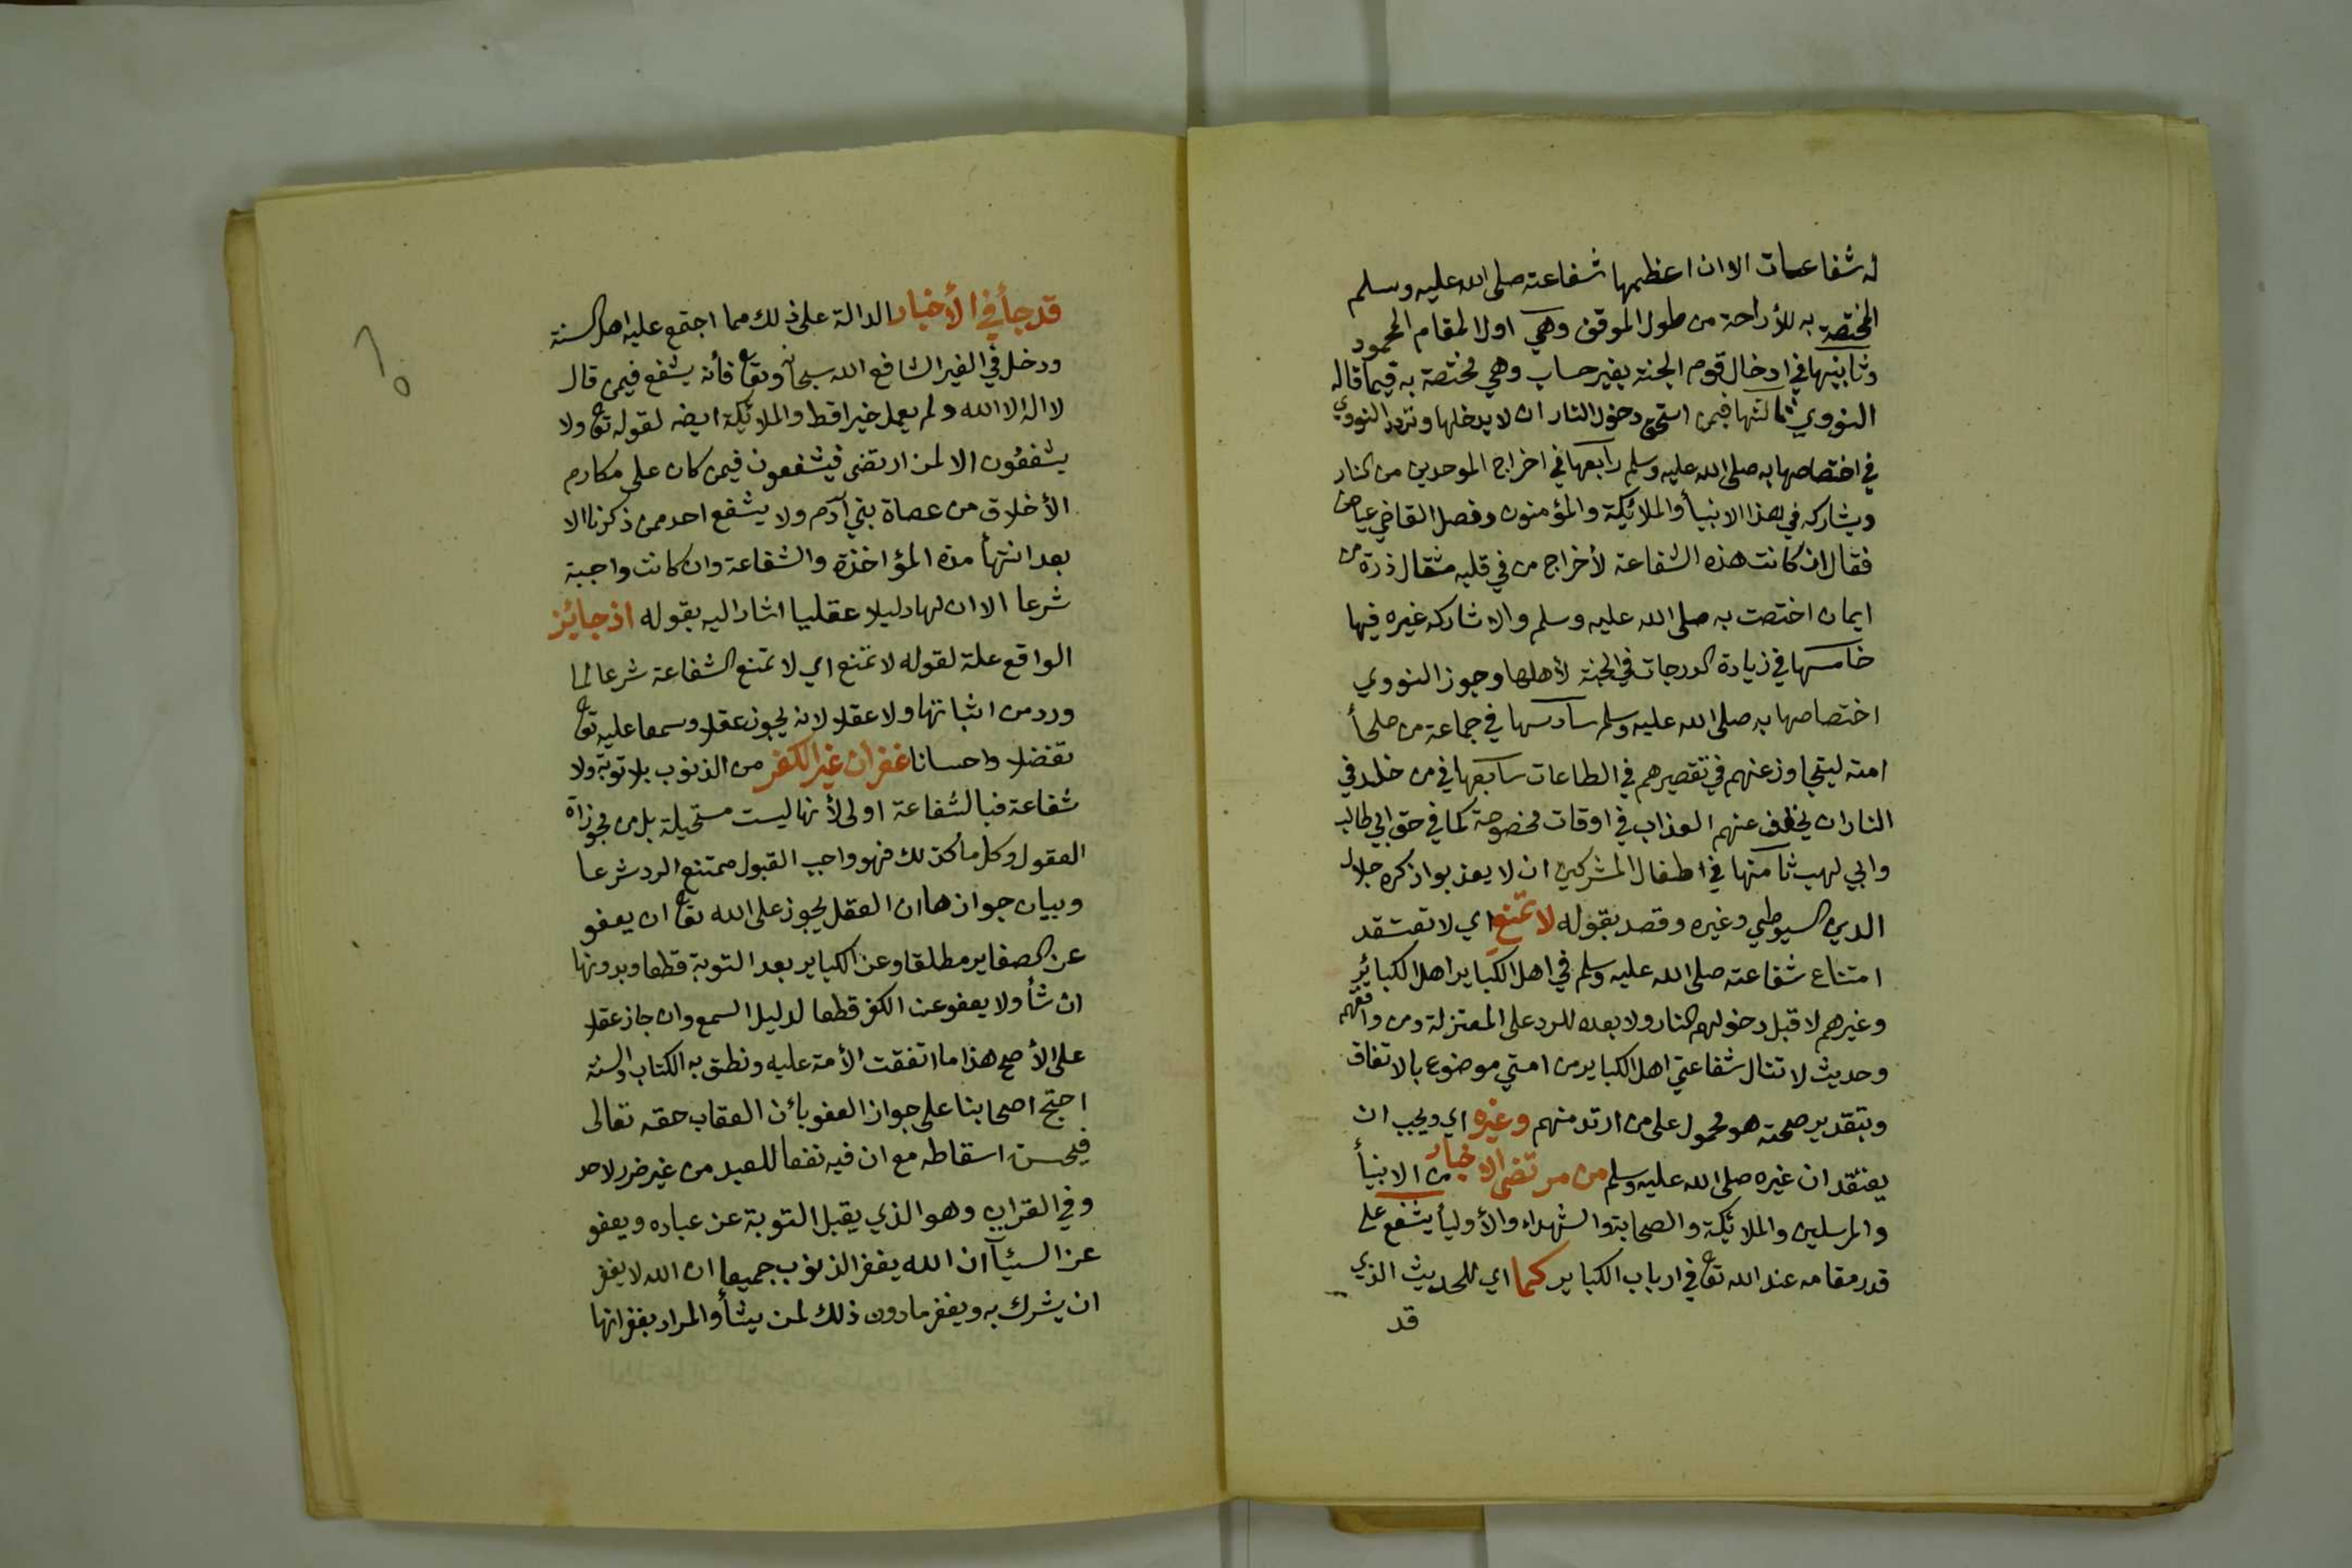 له شفاعات الا ان اعظمها شفاعته صلى الله عليه وسلم
المختصة به للأراحة من طول الموقف وهي اول المقام المحمود
وثانيتها في ادخال قوم الجنة بغير حساب وهي مختصة به فيما قاله
النووي ثالثتها فيمن استحق دخول النار ان لا يدخلها وتردد النووي
في اختصاصها به صلى الله عليه وسلم رابعها في اخراج الموحدين من النار
ويشاركه في هذا الانبيأ والملائكة والمؤمنون وفصل القاضي عياض
فقال ان كانت هذه الشفاعة لأخراج من في قلبه مثقال ذرة من
ايمان اختصت به صلى الله عليه وسلم والا شاركه غيره فيها
خامسها في زيادة الدرجات في الجنة لأهلها وجوز النووي
اختصاصها به صلى الله عليه وسلم سادسها في جماعة من صلحأ
امته ليتجاوز عنهم في تقصيرهم في الطاعات سابعها في من خلد في
النار ان يخفف عنهم العذاب في اوقات مخصوصة كما في حق ابي طالب
وابي لهب ثامنها في اطفال المشركين ان لا يعذبوا ذكره جلال
الدين السيوطي وغيره وقصد بقوله لا تمنع اي لا تعتقد
امتناع شفاعته صلى الله عليه وسلم في اهل الكباير اهل الكبائر
وغيرهم لا قبل دخولهم النار ولا بعده للرد على المعتزلة ومن وافقهم
وحديث لا تنال شفاعتي اهل الكباير من امتي موضوع بالاتفاق
وبتقدير صحته هو محمول على من ارتد منهم وغيره اي ويجب ان
يعتقد ان غيره صلى الله عليه وسلم من مرتضى الاخيار من الانبيأ
والمرسلين والملائكة والصحابة والشهداء والأوليأ يشفع على
قدر مقامه عند الله تع في ارباب الكباير كما اي للحديث الذي
قد
قد جأ في الأخبار الدالة على ذلك مما اجتمع عليه اهل السنة
ودخل في الغير الشافع الله سبحانه وتع فأنه يشفع فيمن قال
لا اله الا الله ولم يعمل خيرا قط والملائكة ايضه لقوله تع ولا
يشفعون الا لمن ارتضى فيشفعون فيمن كان على مكارم
الأخلاق من عصاة بني آدم ولا يشفع احد ممن ذكرنا الا
بعد انتهأ مدة المؤاخذة والشفاعة وان كانت واجبة
شرعا الا ان لها دليلا عقليا اشار اليه بقوله اذ جائز
الواقع علة لقوله لا تمنع اي لا تمنع الشفاعة شرعا لما
ورد من اثباتها ولا عقلا لانه يجوز عقلا وسمعا عليه تع
تفضلا واحسانا غفران غير الكفر من الذنوب بلا توبة ولا
شفاعة فبالشفاعة اولى لأنها ليست مستحيلة بل من مجوزاة
العقول وكل ما كذلك فهو واجب القبول ممتنع الرد شرعا
وبيان جوازها ان العقل يجوز على الله تع ان يعفو
عن الصغاير مطلقا وعن الكباير بعد التوبة قطعا وبدونها
ان شأ ولا يعفو عن الكفر قطعا لدليل السمع وان جاز عقلا
على الأصح هذا ما اتفقت الأمة عليه ونطق به الكتاب والسنة
احتج اصحابنا على جواز العفو بأن العقاب حقه تعالى
فيحسن اسقاطه مع ان فيه نفعا للعبد من غير ضرر لاحد
وفي القران وهو الذي يقبل التوبة عن عباده ويعفو
عن السيئآ ان الله يغفر الذنوب جميعا ان الله لا يغفر
ان يشرك به ويغفر ما دون ذلك لمن يشأ والمراد بغفرانها